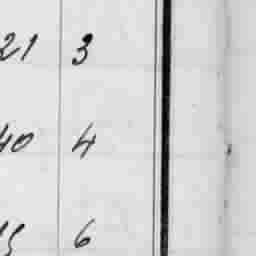 21 3
40 4
6